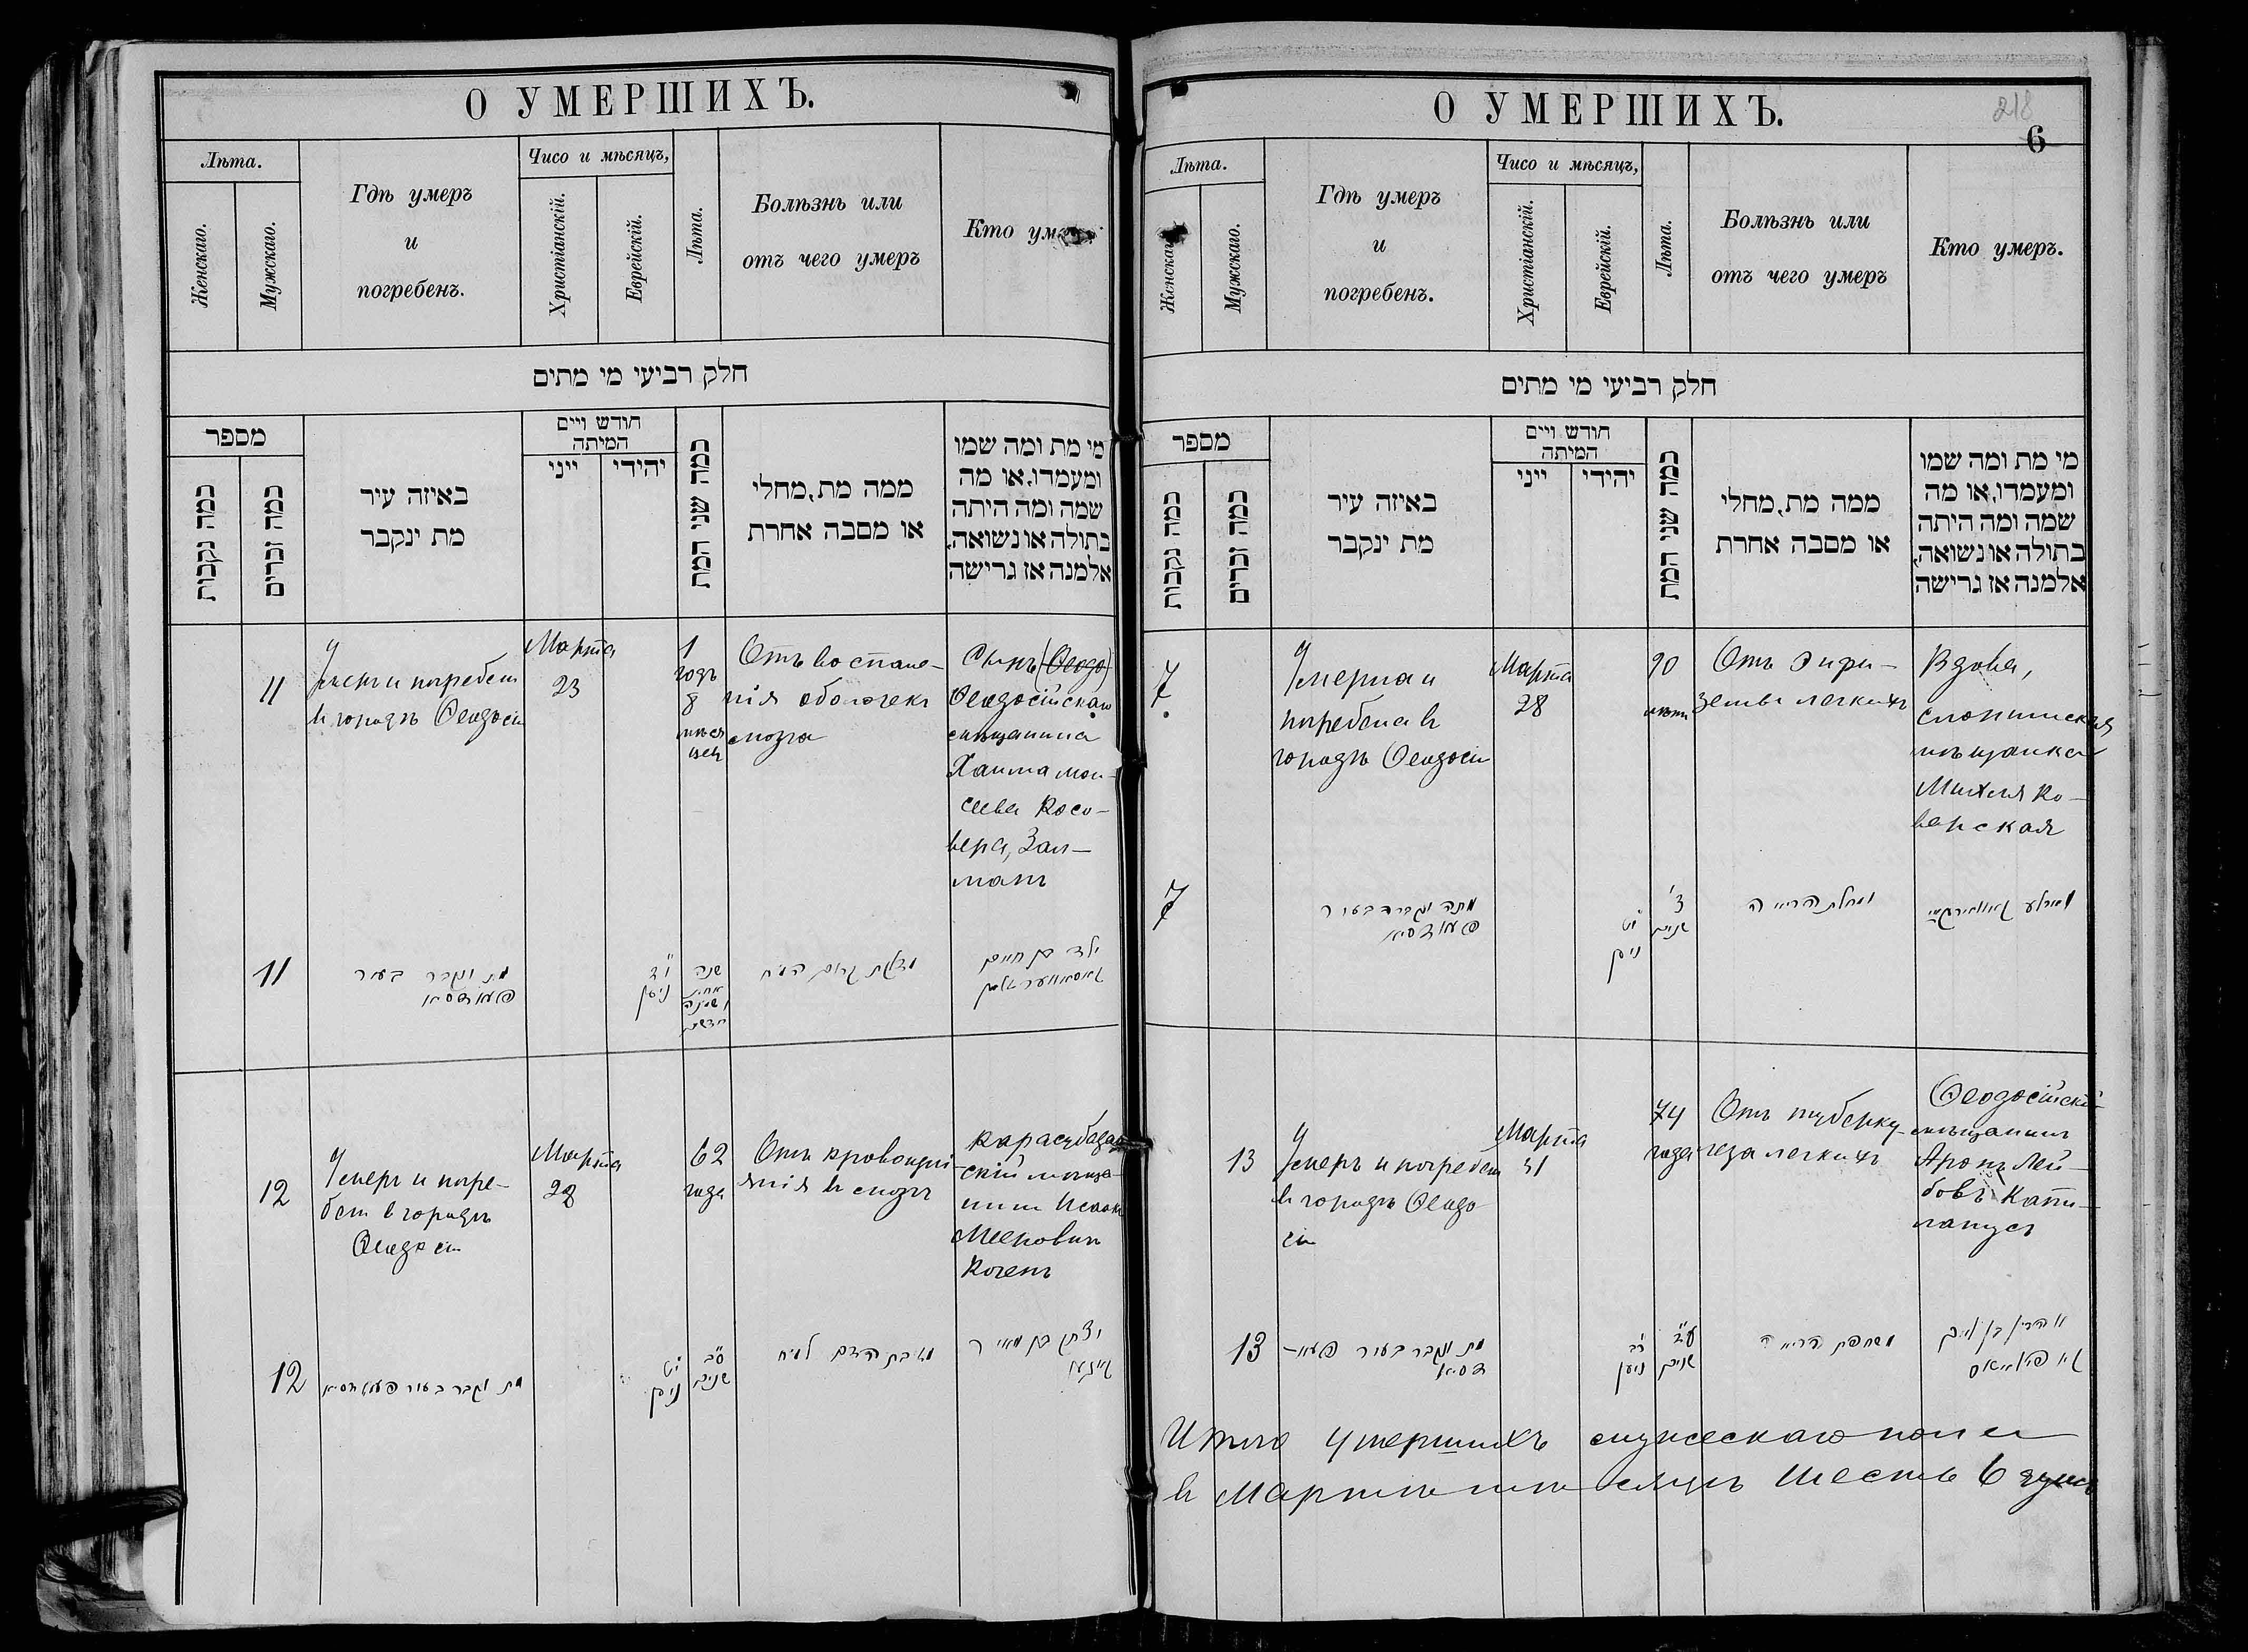 О УМЕРШИХЪ.
Лѣта.
Женскаго.
Мужскаго.
Гдѣ умеръ
и
погребенъ.
Чисо и мѣсяцъ,
Христіанскій.
Еврейскій.
Лѣта.
Болѣзнь или
отъ чего умеръ
Кто
חלק רביעי מי מתים
מספר
כמה נקבות
כמה זכרים
באיזה עיר
מת ינקבר
חודש ויים
המיתה
ייני
יהודי
כמה שני המת
ממה מת, מחלי
או מסבה אחרת
מי מת ומה שמו
ומעמדו, או מה
שמה ומה היתה
בתולה או נשואה,
אלמנה אז גרישה
11
Умеръ и погребенъ
въ городѣ Ѳеодосіи
Марта
23
1
годъ
8
мѣся
цевъ
Отъ воспале-
нія оболочекъ
мозга
Сынъ (Ѳеодо)
Ѳеодосійскаго
мѣщанина
Хаима Мои-
сеева Косо-
вера, Зал-
манъ
11
מת ונקבר בעיר
פעאדסיא
י"ד
ניסן
שנה
אחת
ושמנה
חדשים
ילד בן חיים
12
Умеръ и погре-
бенъ въ городѣ
Ѳеодосіи
Марта
28
62
года
Отъ кровоизлі-
янія въ мозгъ
Карасубазар
скій мѣща-
нинъ Исаакъ
Мееровичъ
12
מת ונקבר בעיר פעאדסיא
י"ט
ניסן
ס"ב
שנים
יצחק בן מאיר
О УМЕРШИХЪ.
218
6
Лѣта.
Мужскаго.
Гдѣ умеръ
и
погребенъ.
Чисо и мѣсяцъ,
Христіанскій.
Еврейскій.
Лѣта.
Болѣзнь или
отъ чего умеръ
Кто умеръ.
חלק רביעי מי מתים
מספר
כמה נקבות
כמה זכרים
באיזה עיר
מת ינקבר
חודש ויים
המיתה
ייני
יהודי
כמה שני המת
ממה מת, מחלי
או מסבה אחרת
מי מת ומה שמו
ומעמדו, או מה
שמה ומה היתה
בתולה או נשואה,
אלמנה אז גרישה
7
Умерла и
погребена въ
городѣ Ѳеодосіи
Марта
28
90
лѣтъ
Отъ Эмфи-
земы легкихъ
Вдова,
слонимская
мѣщанка
Михля Ко-
варская
7
מתה ונקברה בעיר
פעאדסיא
י"ט
ניסן
צ'
שנים
מחלת הריאה
13
Умеръ и погребенъ
въ городѣ Ѳеодо
сіи
Марта
31
74
года
Отъ туберку-
леза легкихъ
Ѳеодосійскій
мѣщанинъ
Аронъ Лей-
бовъ
13
מת ונקבר בעיר פעאד-
דסיא
כ"ב
ניסן
ע"ד
שנים
שחפת הריאה
אהרן בן לייב
Итого умершихъ мужескаго пола
въ Мартѣ мѣсяцѣ шесть 6 душъ